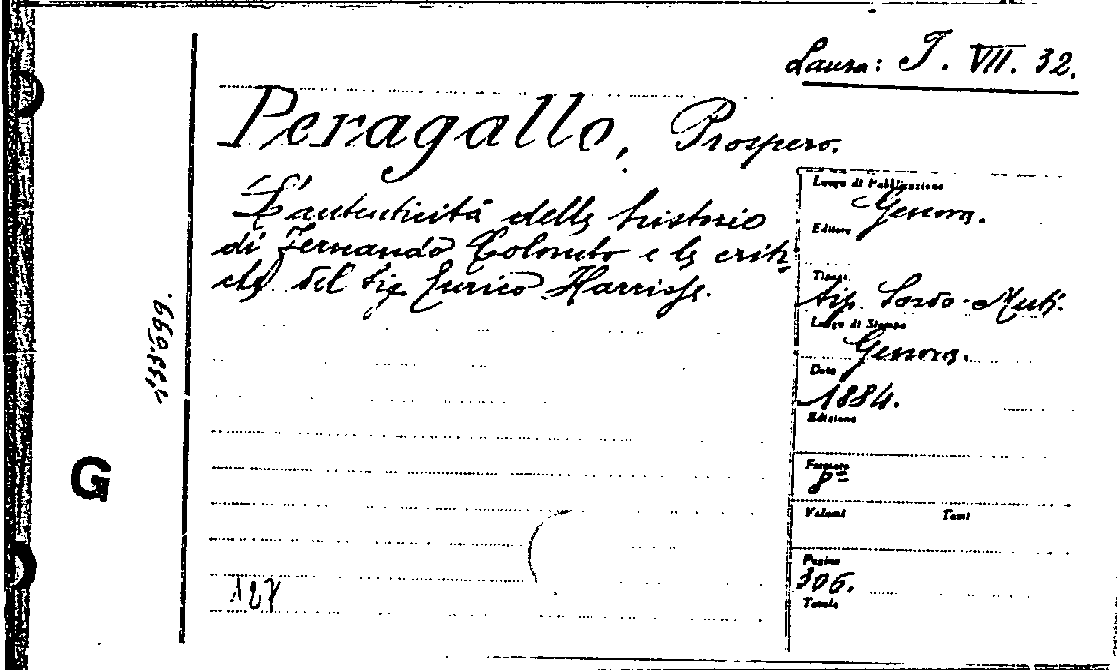 Laura: J. VII. 32.
Peragallo, Prospero.
L'autenticità delle historie
di Fernando Colombo e le criti-
che del sig Enrico Harrisse.
Luogo di Pubblicazione
Genova.
Editore
Tipogr.
tip. Sordo-Muti.
Luogo di Stampa
Genova.
Data
1884.
Edizione
Formato
8º
Volumi Tomi
Pagine
306.
Tavole
G
127